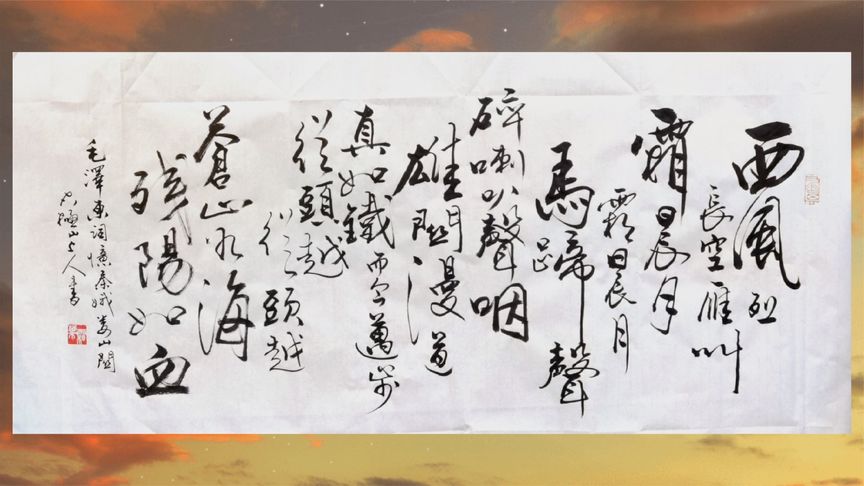 西風烈
長空雁叫
霜晨月
霜晨月
馬蹄聲
碎喇叭聲咽
雄關漫道
真如鐵而今邁步
從頭越
從頭越
蒼山如海
殘陽如血
毛澤東詞憶秦娥婁山關
山上人書